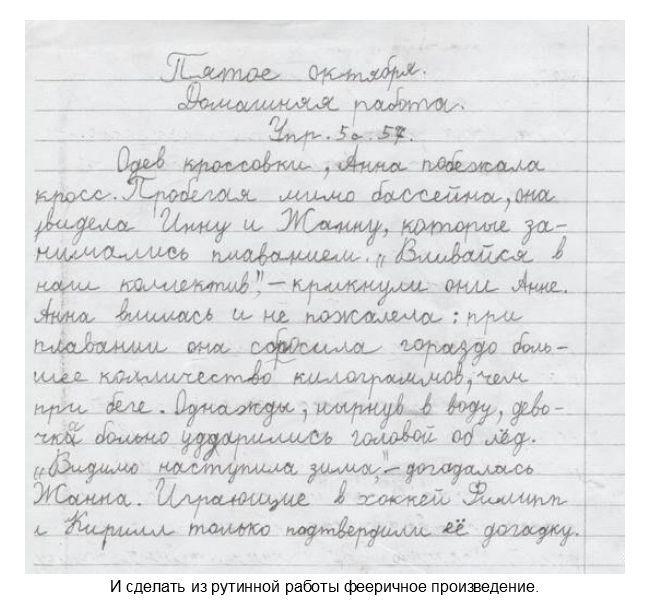 Пятое октября.
Домашняя работа.
Упр. 5а. 57.
Одев кроссовки, Анна побежала
кросс. Пробегая мимо бассейна, она
увидела Инну и Жанну, которые за-
нимались плаванием. „Вливайся в
наш коллектив", – крикнули они Анне.
Анна влилась и не пожалела: при
плавании она сбросила гораздо боль-
шее колличество килограммов, чем
при беге. Однажды, нырнув в воду, дево-
чка больно уддарились головой об лёд.
„Видимо наступила зима," – догадалась
Жанна. Играющие в хоккей Филипп
и Кирилл только подтвердили её догадку.
И сделать из рутинной работы фееричное произведение.